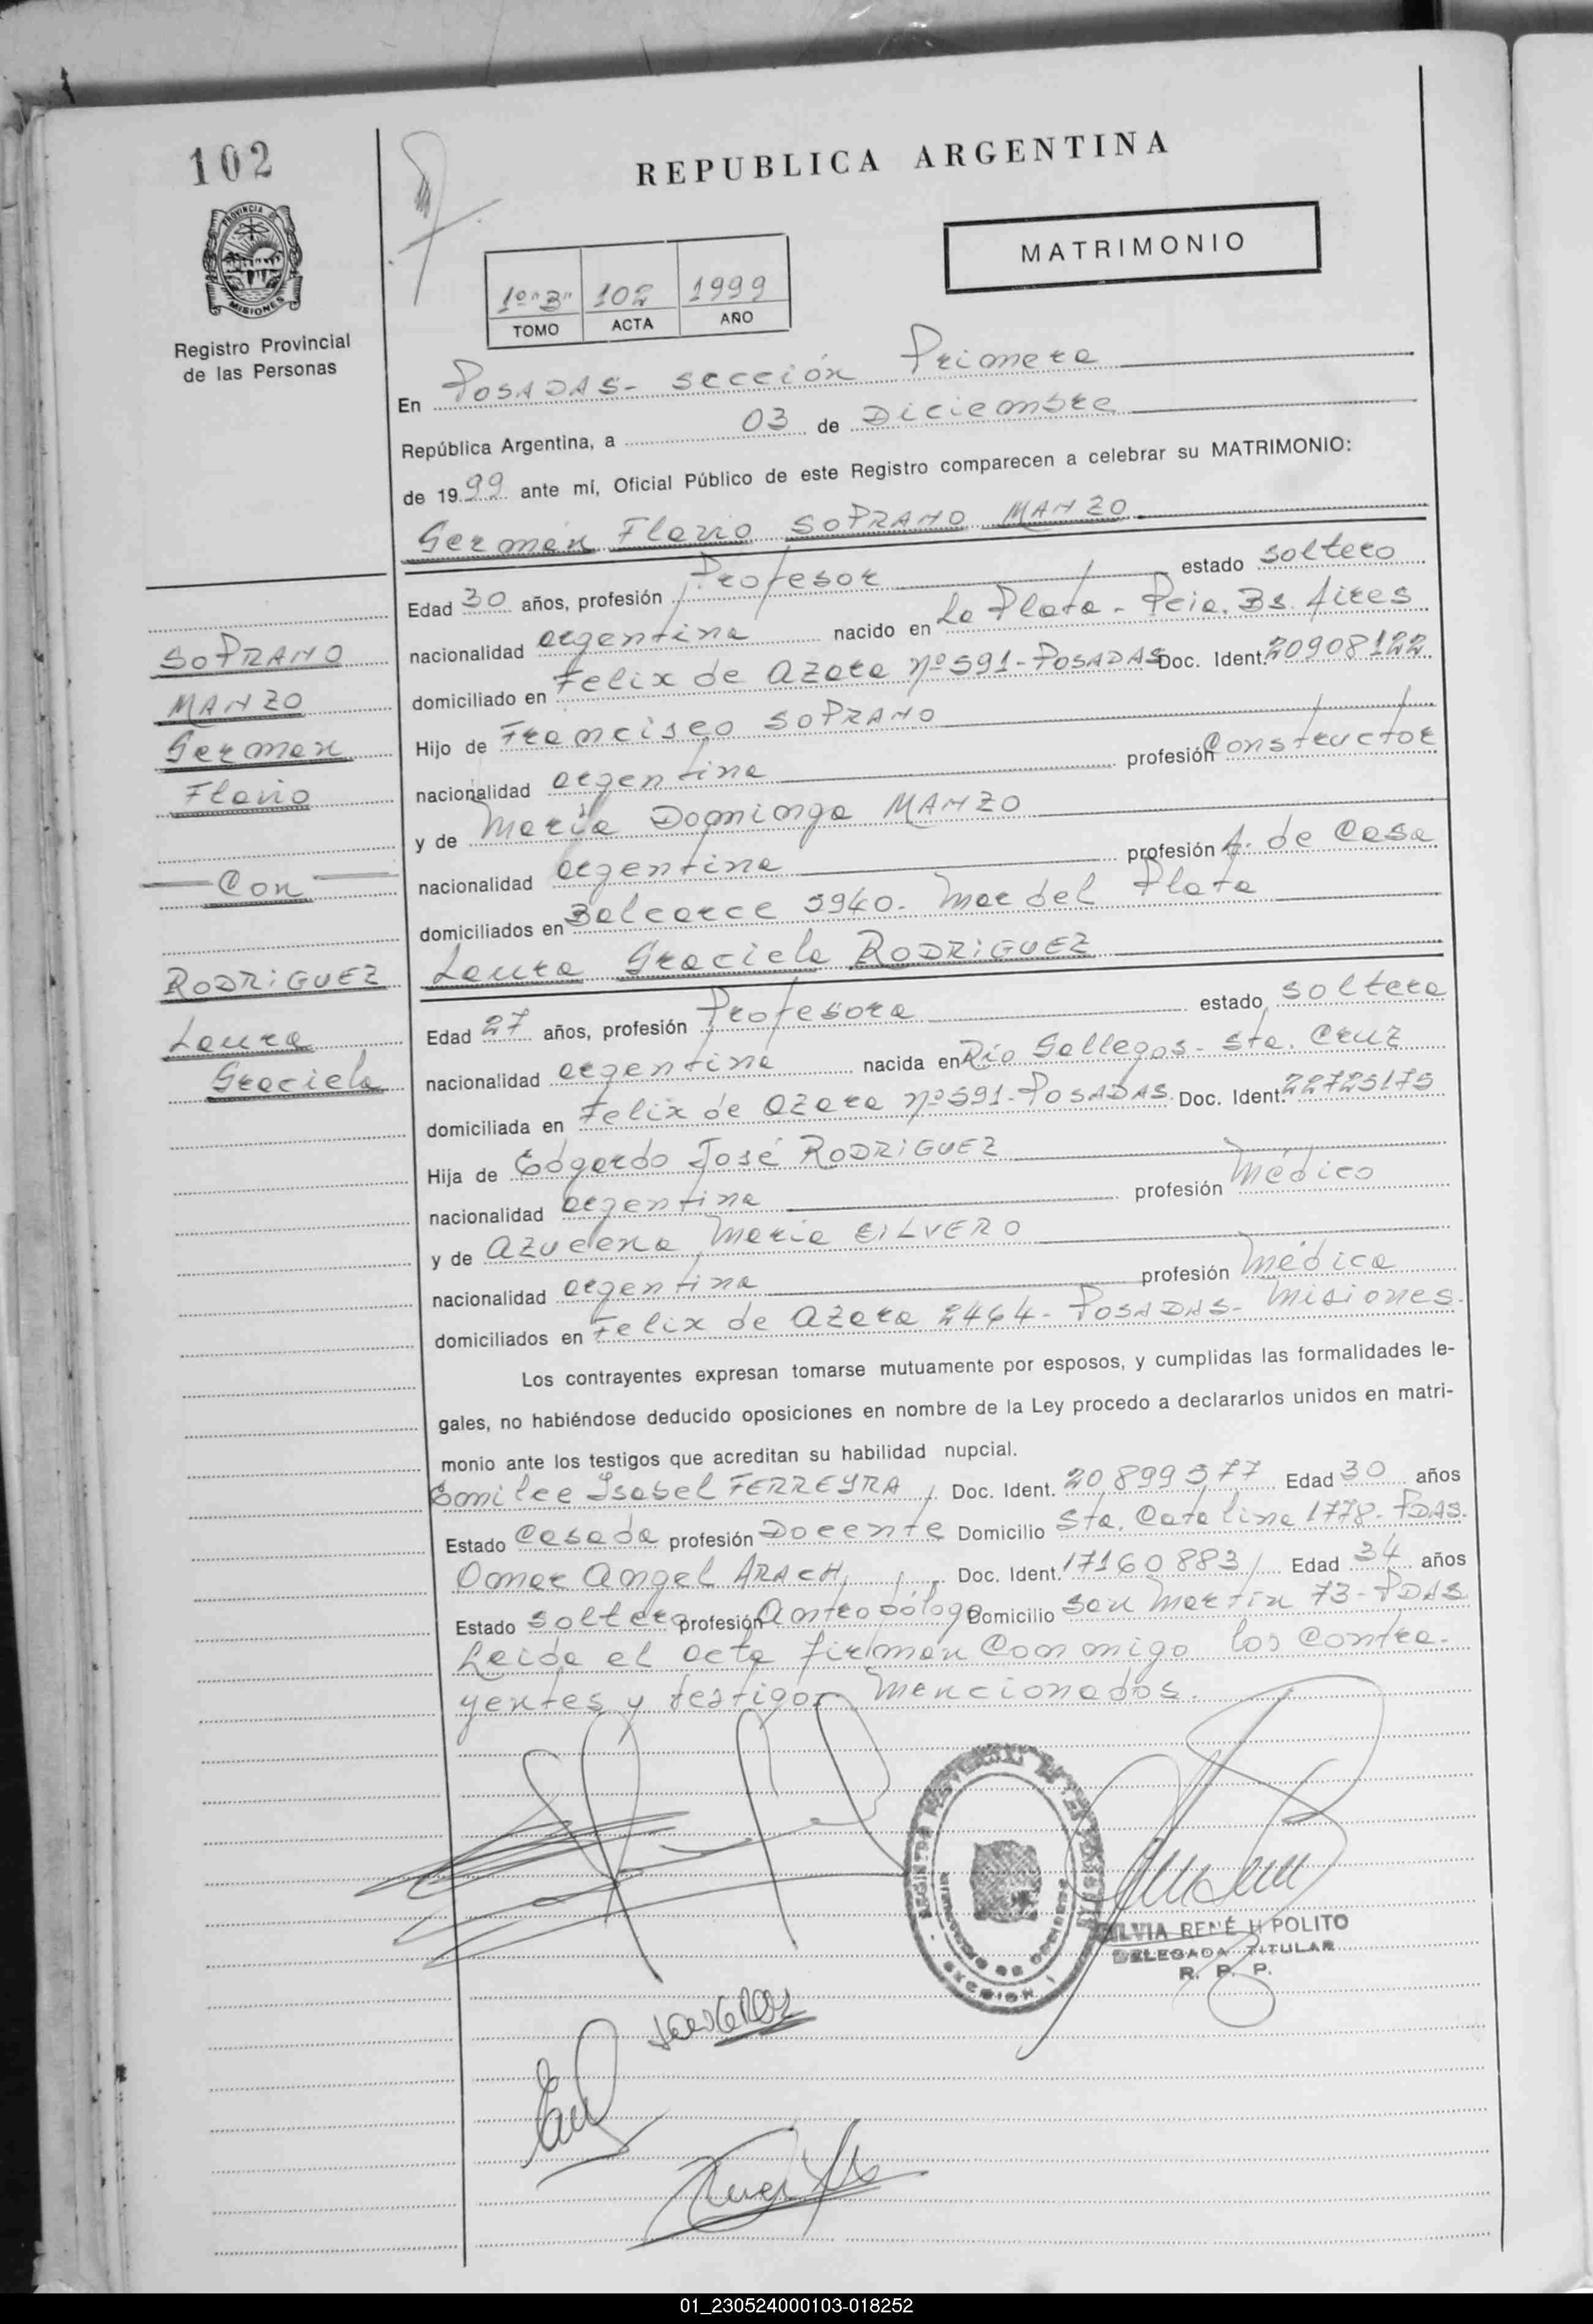 102
REPUBLICA ARGENTINA
PROVINCIA DE
MISIONES
MATRIMONIO
1º"B" 102 1999
TOMO ACTA AÑO
Registro Provincial
de las Personas
En POSADAS- sección Primera
República Argentina, a 03 de Diciembre
de 1999 ante mí, Oficial Público de este Registro comparecen a celebrar su MATRIMONIO:
Germán Flavio SOPRANO MANZO
Edad 30 años, profesión Profesor estado soltero
nacionalidad argentina nacido en La Plata - Pcia. Bs. Aires
domiciliado en Felix de Azara nº 591-POSADAS Doc. Ident. 20908122
Hijo de Francisco SOPRANO
nacionalidad argentina profesión Constructor
y de María Dominga MANZO
nacionalidad argentina profesión A. de Casa
domiciliados en Balcarce 5940- Mar del Plata
Laura Graciela RODRIGUEZ
Edad 27 años, profesión Profesora estado soltera
nacionalidad argentina nacida en Río Gallegos- Sta. Cruz
domiciliada en Felix de Azara nº 591-POSADAS. Doc. Ident. 22725175
Hija de Edgardo José RODRIGUEZ
nacionalidad argentina profesión Médico
y de Azucena María EILVERO
nacionalidad argentina profesión Médica
domiciliados en Felix de Azara 2464- POSADAS- Misiones.
SOPRANO
MANZO
German
Flavio
Con
RODRIGUEZ
Laura
Graciela
Los contrayentes expresan tomarse mutuamente por esposos, y cumplidas las formalidades le-
gales, no habiéndose deducido oposiciones en nombre de la Ley procedo a declararlos unidos en matri-
monio ante los testigos que acreditan su habilidad nupcial.
Emilce Isabel FERREYRA, Doc. Ident. 20899577 Edad 30 años
Estado Casada profesión Docente Domicilio Sta. Catalina 1778- PDAS.
Omar Angel ARACH, Doc. Ident. 17160883/ Edad 34 años
Estado soltero profesión Antropólogo Domicilio San Martín 73-PDAS
Leida el acta firman conmigo los contra-
yentes y testigos mencionados.
SILVIA RENÉ HIPOLITO
DELEGADA TITULAR
R. P. P.
01_230524000103-018252